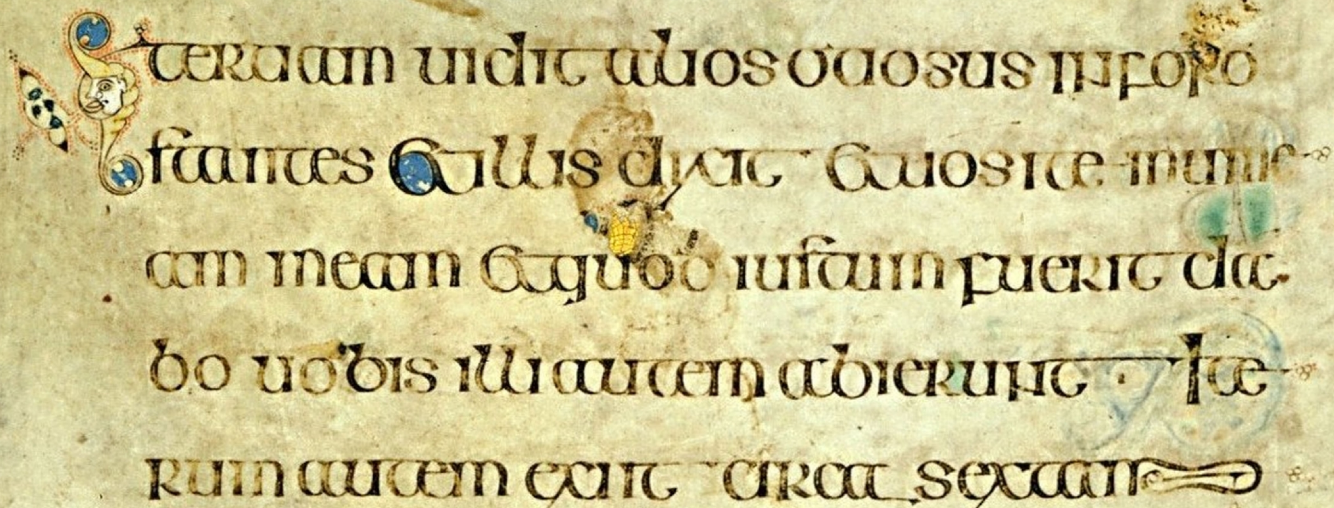 terciam uidit alios ociosus in foro
stantes et illis dixit et uos ite in uine
am meam et quod iustum fuerit da
bo uobis illi autem abierunt · Ite
rum autem exiit circa sextam